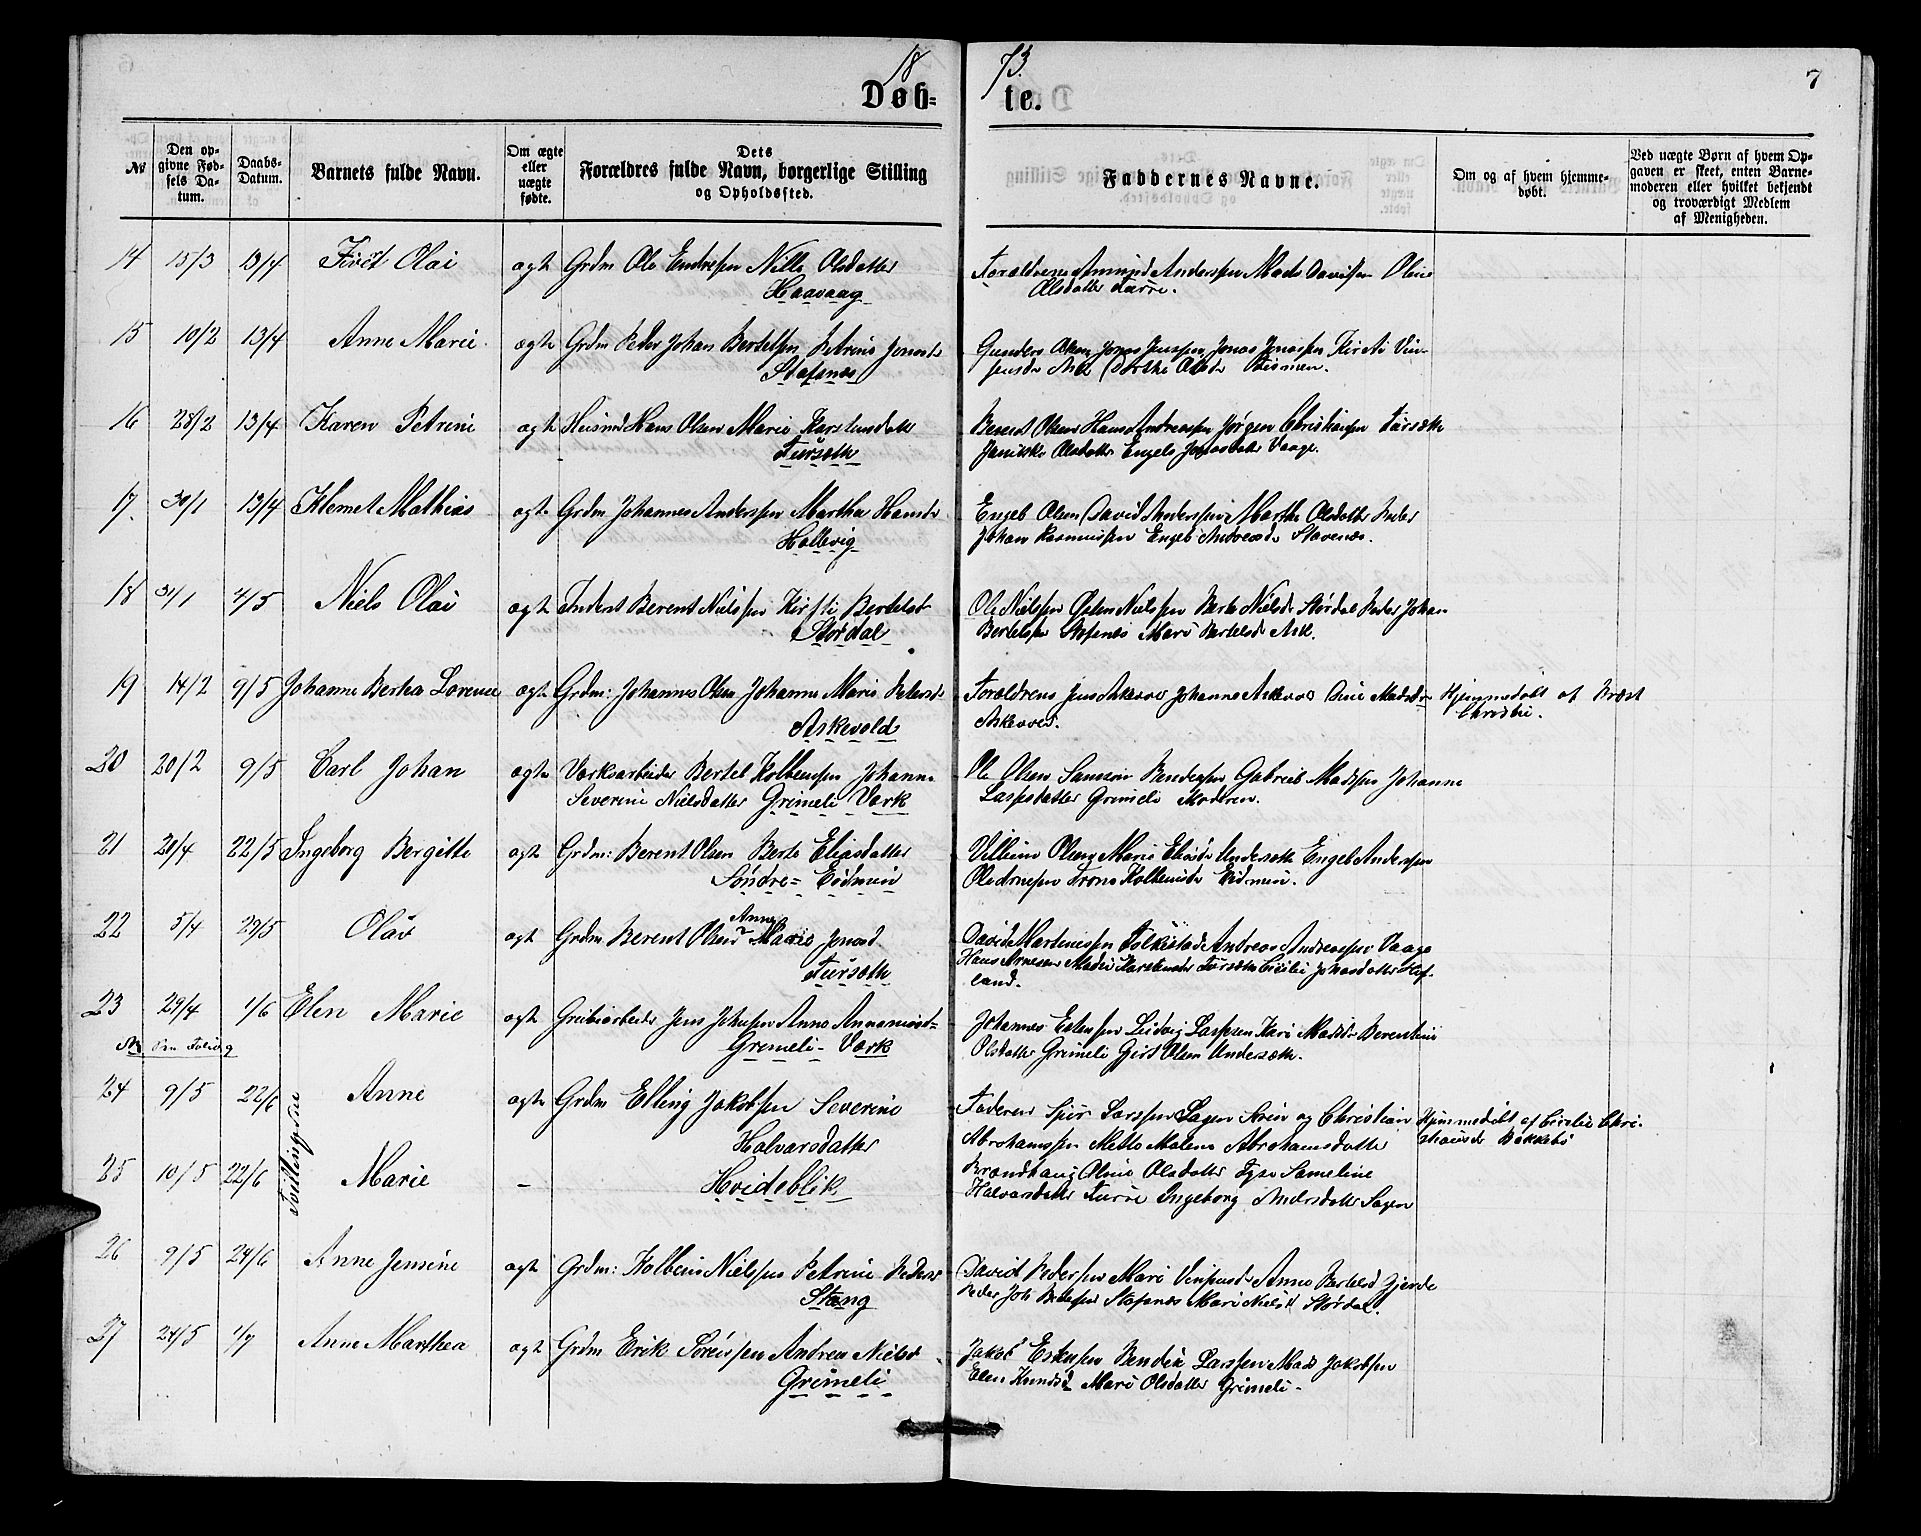 18 73.
7
Døb- te.
№
Den opgivne Fødsels Datum.
Daabs-Datum.
Barnets fulde Navn.
Om ægte eller uægte fødte.
Dets Forældres fulde Navn, borgerlige Stilling og Opholdssted.
Faddernes Navne.
Om og af hvem hjemmedøbt.
Ved uægte Børn af hvem Opgaven er skeet, enten Barnemoderen eller hvilket bekjendt og troværdigt Medlem af Menigheden.
14 15/3 13/4 Olai ægte Grdm Ole Endresen Nille Olsdatter
Haavaag
Forældrene Amund Anderssen Mads Davidsen Oline
Olsdatter Furre.
15 10/2 13/4 Anne Marie ægte Grdm Peder Johan Bertelsen Petrine Jonasd.
Stafsnæs
Gunders Olsen Jonas Jenssen Jonas Jonassen Kirsti
Ask Dorthe Olsdr
16 28/2 13/4 Karen Petrine ægte Huusmd Hans Olsen Marie Karstendatter
Fursæth
Berent Olsen Hans Andreassen Jørgen Christiansen Fursæth
Jonikke Olsdatter Engel Jonasdatter Vaage.
17. 30/1 13/4 Klemet Mathias ægte Grdm Johannes Anderssen Martha Hansdr
Hollevig
Engeb Olsen David Anderssen Marthe Olsdatter Peder
Johan Rasmussen Engel Andreasdr Stavenæs.
18 31/1 4/5 Niels Olai ægte Inderst Berent Nielssen Kirsti Bertelsd
Stordal
Ole Nielssen Østen Nielssen Berte Nielsdr Stordal Peder Johan
Bertelsen Stafsnæs Mari Bertelsdr Ask.
19 14/2 9/5 Johanne Bertha Lorense ægte Grdm: Johannes Olsen Johanne Marie Pedersdr
Askevold
Forældrene Jens Askevold Johanne Askevold Oline Madsdr
Askevold.
Hjemmedøbt af Præst
Christie.
20 20/2 9/5 Carl Johan ægte Værksarbeider Bertel Kolbenssen Johanne
Severine Nielsdatter Grimeli Værk
Ole Olsen Samson Bendixsen Gabriel Madssen Johanne
Lassesdatter Grimeli Moderen.
21 20/4 22/5 Ingeborg Bergitte ægte Grdm: Berent Olsen Berte Eliasdatter
Søndre= Eidmein
Villum Olsen Marie Eliasdr Undersæth Engel Anderssen
Ole Arnessen Trone Kolbensdr Eidmein.
22 5/4 23/5 Olav ægt Grdm. Berent Olsen Anne Marie Jonasd.
Fursæth
David Martinussen Folkestad Andreas Andreassen Vaage
Hans Arnesen Madei Karstensdr Fursæth Cicilie Johasdatter
land.
23 29/4 1/6 Elen Marie ægt Grubearbeider Jens Johnsen Anne Annanias d=
Grimeli- Værk
Johannes Estenssen Ludvig Lassesen Kari Madsdr Berentine
Olsdatter Grimeli Gjert Olsen Undersæth.
24 9/5 22/6 Anne ægte Grdm Elling Jakobssen Severine
Halvarsdatter
Tvillingsøstre
25 10/5 22/6 Marie - Hvideblik
Faderen Sjur Larssen Sagen Stein og Christian
Abrahamssen Mette Malene Abrahamsdatter
Brandhaug Oline Olsdatter Tyse Sameline
Halvarsdatter Furre Ingeborg Andersdatter Sagen
Hjemmedøbt af Cicilie Chri-
stiansdr Bakkebø
26 9/5 24/6 Anne Jensine ægt Grdm: Kolbein Nielssen Petrine Pedersd
Stang
David Pederssen Mari Anne Bertelsd Gjerde
Peder Joh Bertelsen Stafsnæs Mari Nielsd Stordal.
27 24/5 1/7 Anne Marthea ægt Grdm Erik Sørenssen Andrea Nielsd
Grimeli
Jakob Estenssen Bendix Larssen Mads Jakobssen
Elen Knudsd Mari Olsdatter Grimeli.